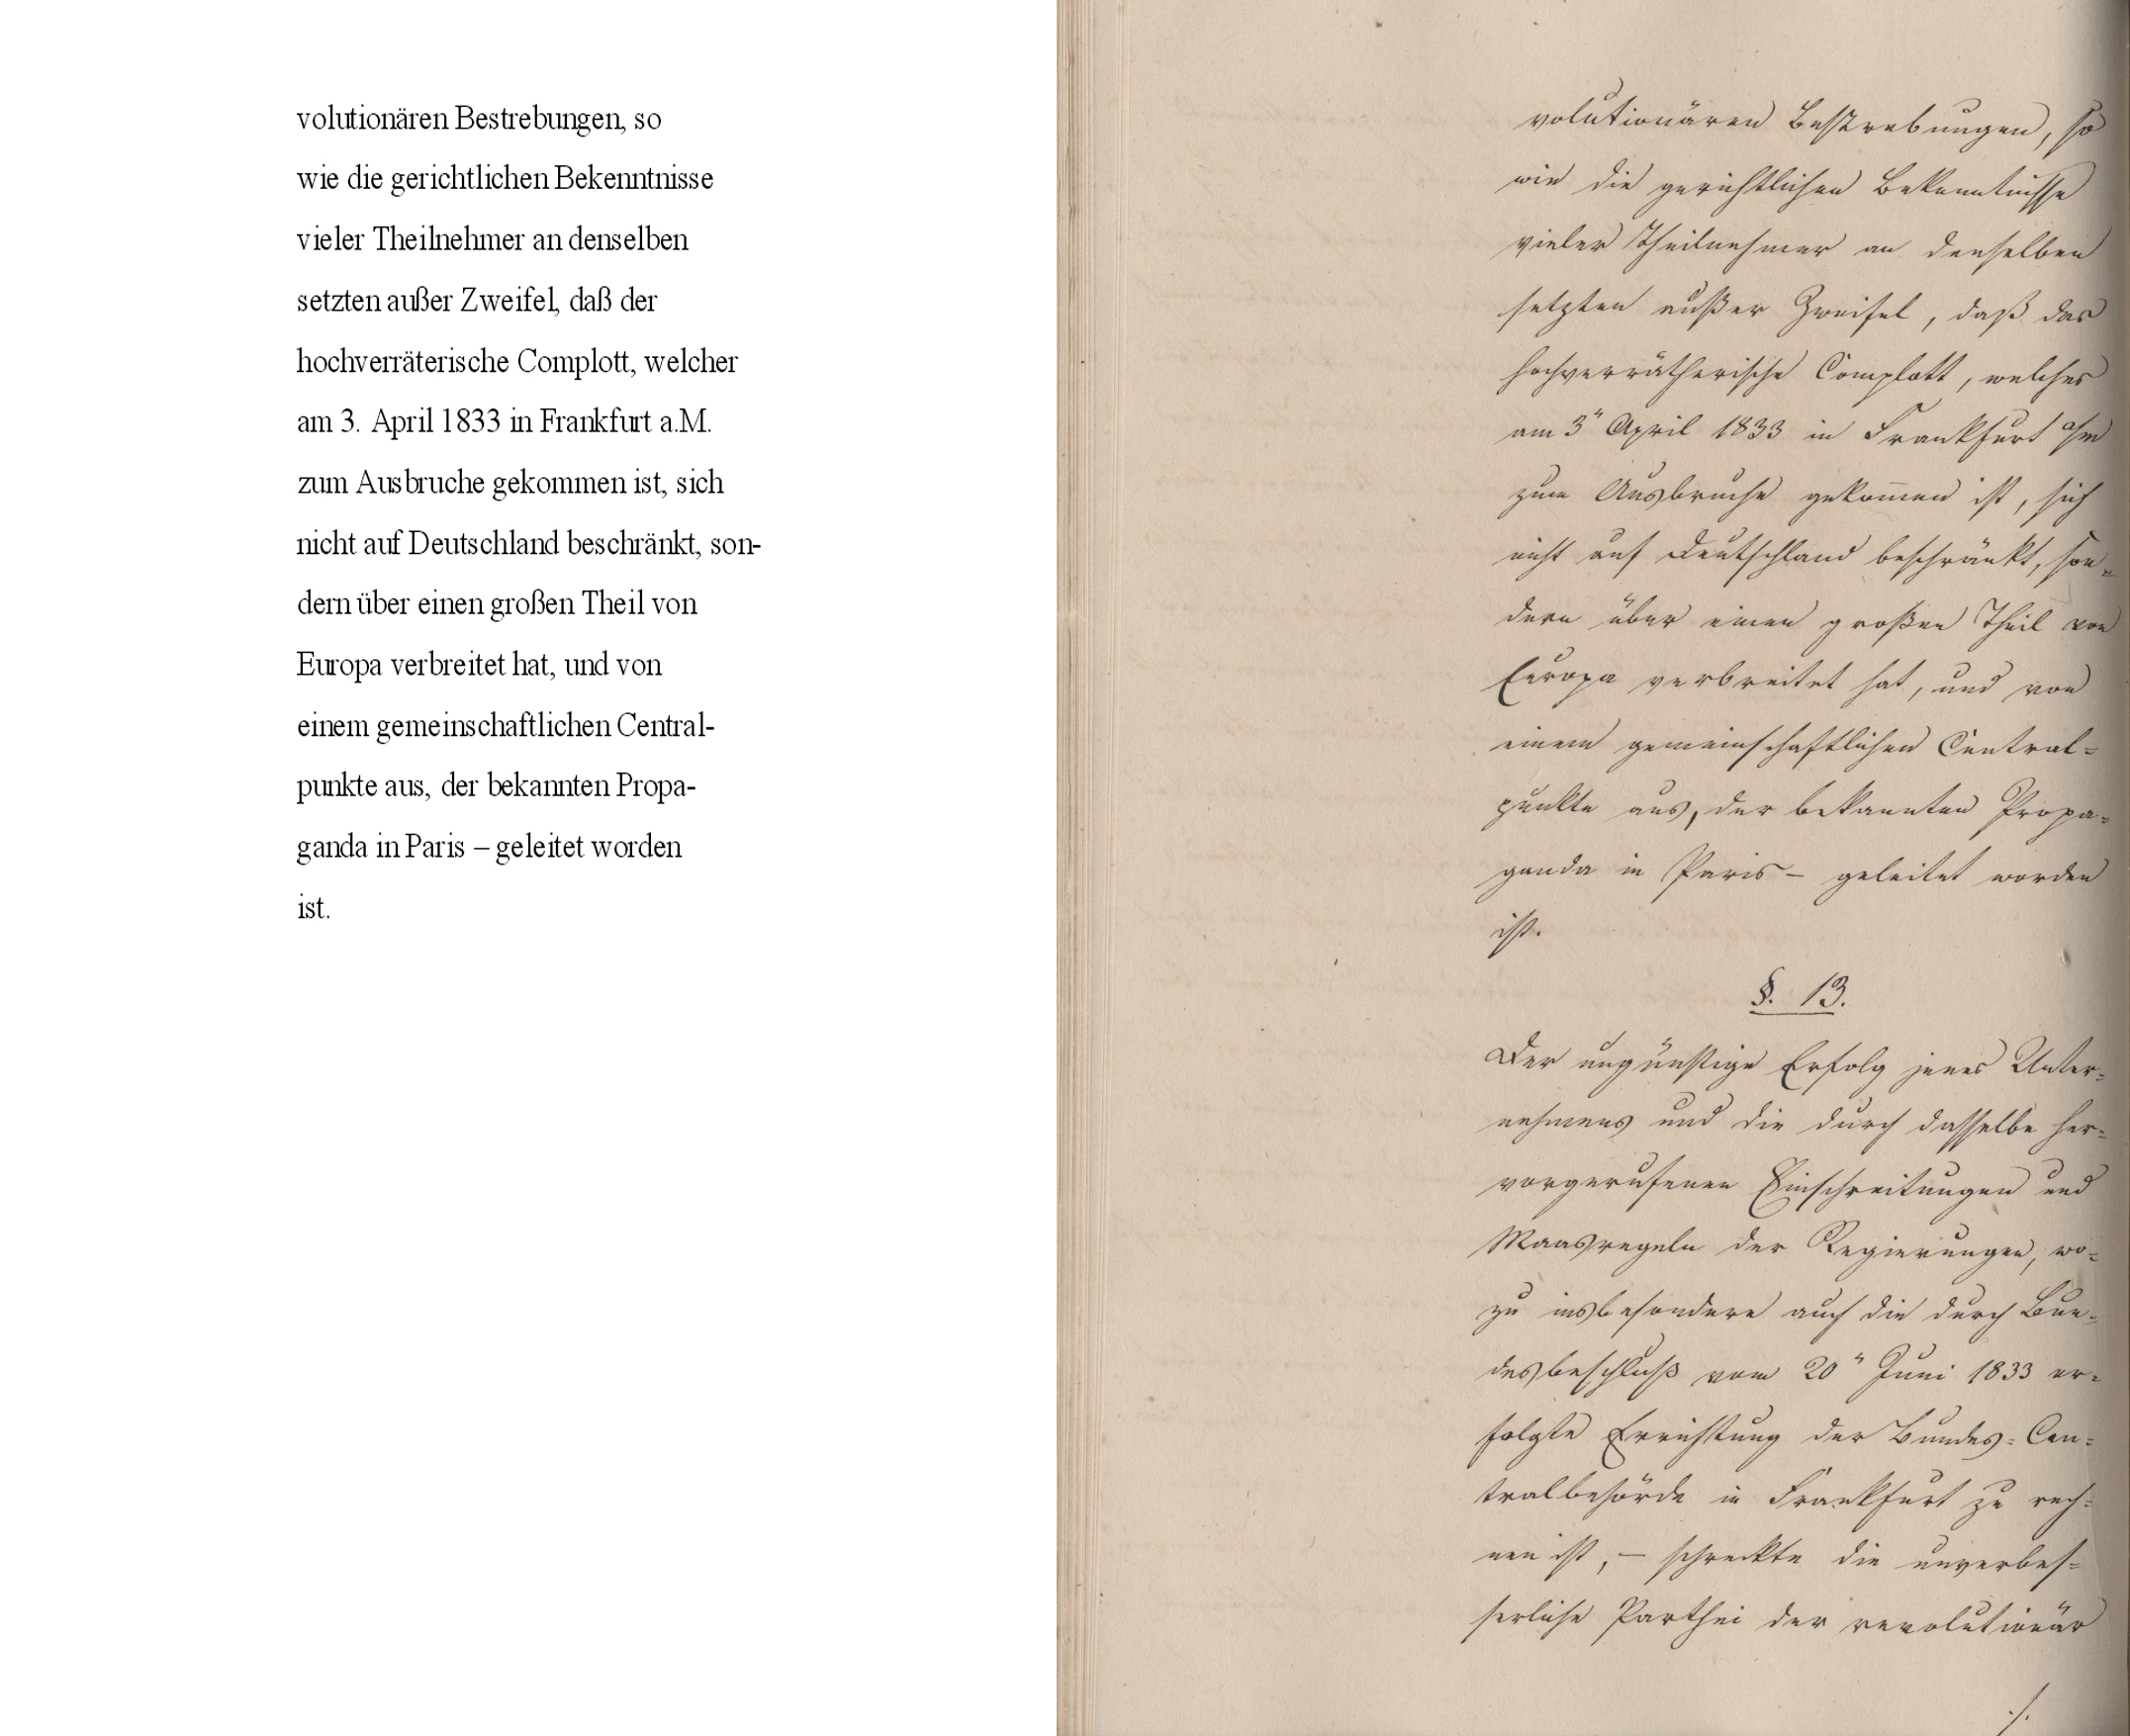 volutionären Bestrebungen, so
wie die gerichtlichen Bekenntnisse
vieler Theilnehmer an denselben
setzten außer Zweifel, daß der
hochverräterische Complott, welcher
am 3. April 1833 in Frankfurt a.M.
zum Ausbruche gekommen ist, sich
nicht auf Deutschland beschränkt, son-
dern über einen großen Theil von
Europa verbreitet hat, und von
einem gemeinschaftlichen Central-
punkte aus, der bekannten Propa-
ganda in Paris – geleitet worden
ist.
volutionären Bestrebungen, so
wie die gerichtlichen Bekenntnisse
vieler Theilnehmer an denselben
setzten außer Zweifel, daß das
hochverrätherische Complott, welches
am 3" April 1833 in Frankfurt a/m
zum Ausbruche gekom̄en ist, sich
nicht auf Deutschland beschränkt, son-
dern über einen großen Theil von
Europa verbreitet hat, und von
einem gemeinschaftlichen Central-
punkte aus, der bekannten Propa-
ganda in Paris – geleitet worden
ist.
§. 13.
Der ungünstige Erfolg jenes Unter-
nehmens und die durch dasselbe her-
vorgerufenen Einschreitungen und
Maasregeln der Regierungen, wo-
zu insbesondere auch die durch Bun-
desbeschluß vom 20" Juni 1833 er-
folgte Errichtung der Bundes-Cen-
tralbehörde in Frankfurt zu rech-
nen ist, – schreckte die unverbes-
serliche Parthei der revolutionär
./.